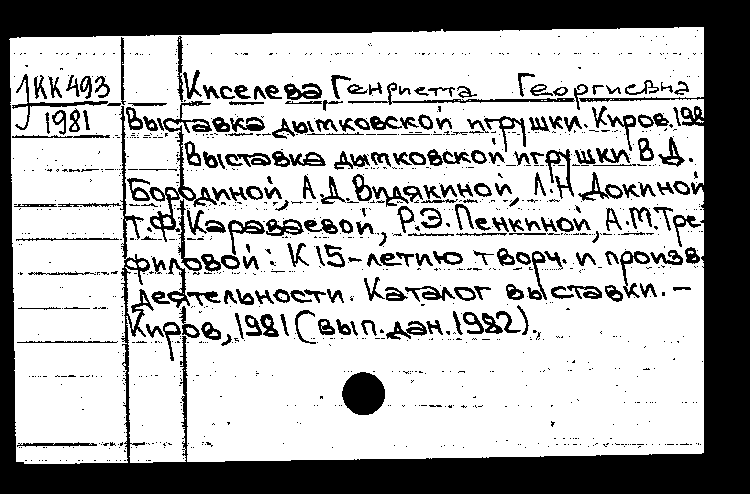 JКК493 Киселева, Генриетта Георгиевна
1981 Выставка дымковской игрушки. Киров, 198
Выставка дымковской игрушки В.Д.
Бородиной, А.Д. Видякиной, Л.Н. Докиной
Т.Ф. Караваевой, Р.Э. Пенкиной, А.М. Тре-
филовой: К 15-летию творч. и произв.
деятельности. Каталог выставки. —
Киров, 1981 (вып. дан. 1982).